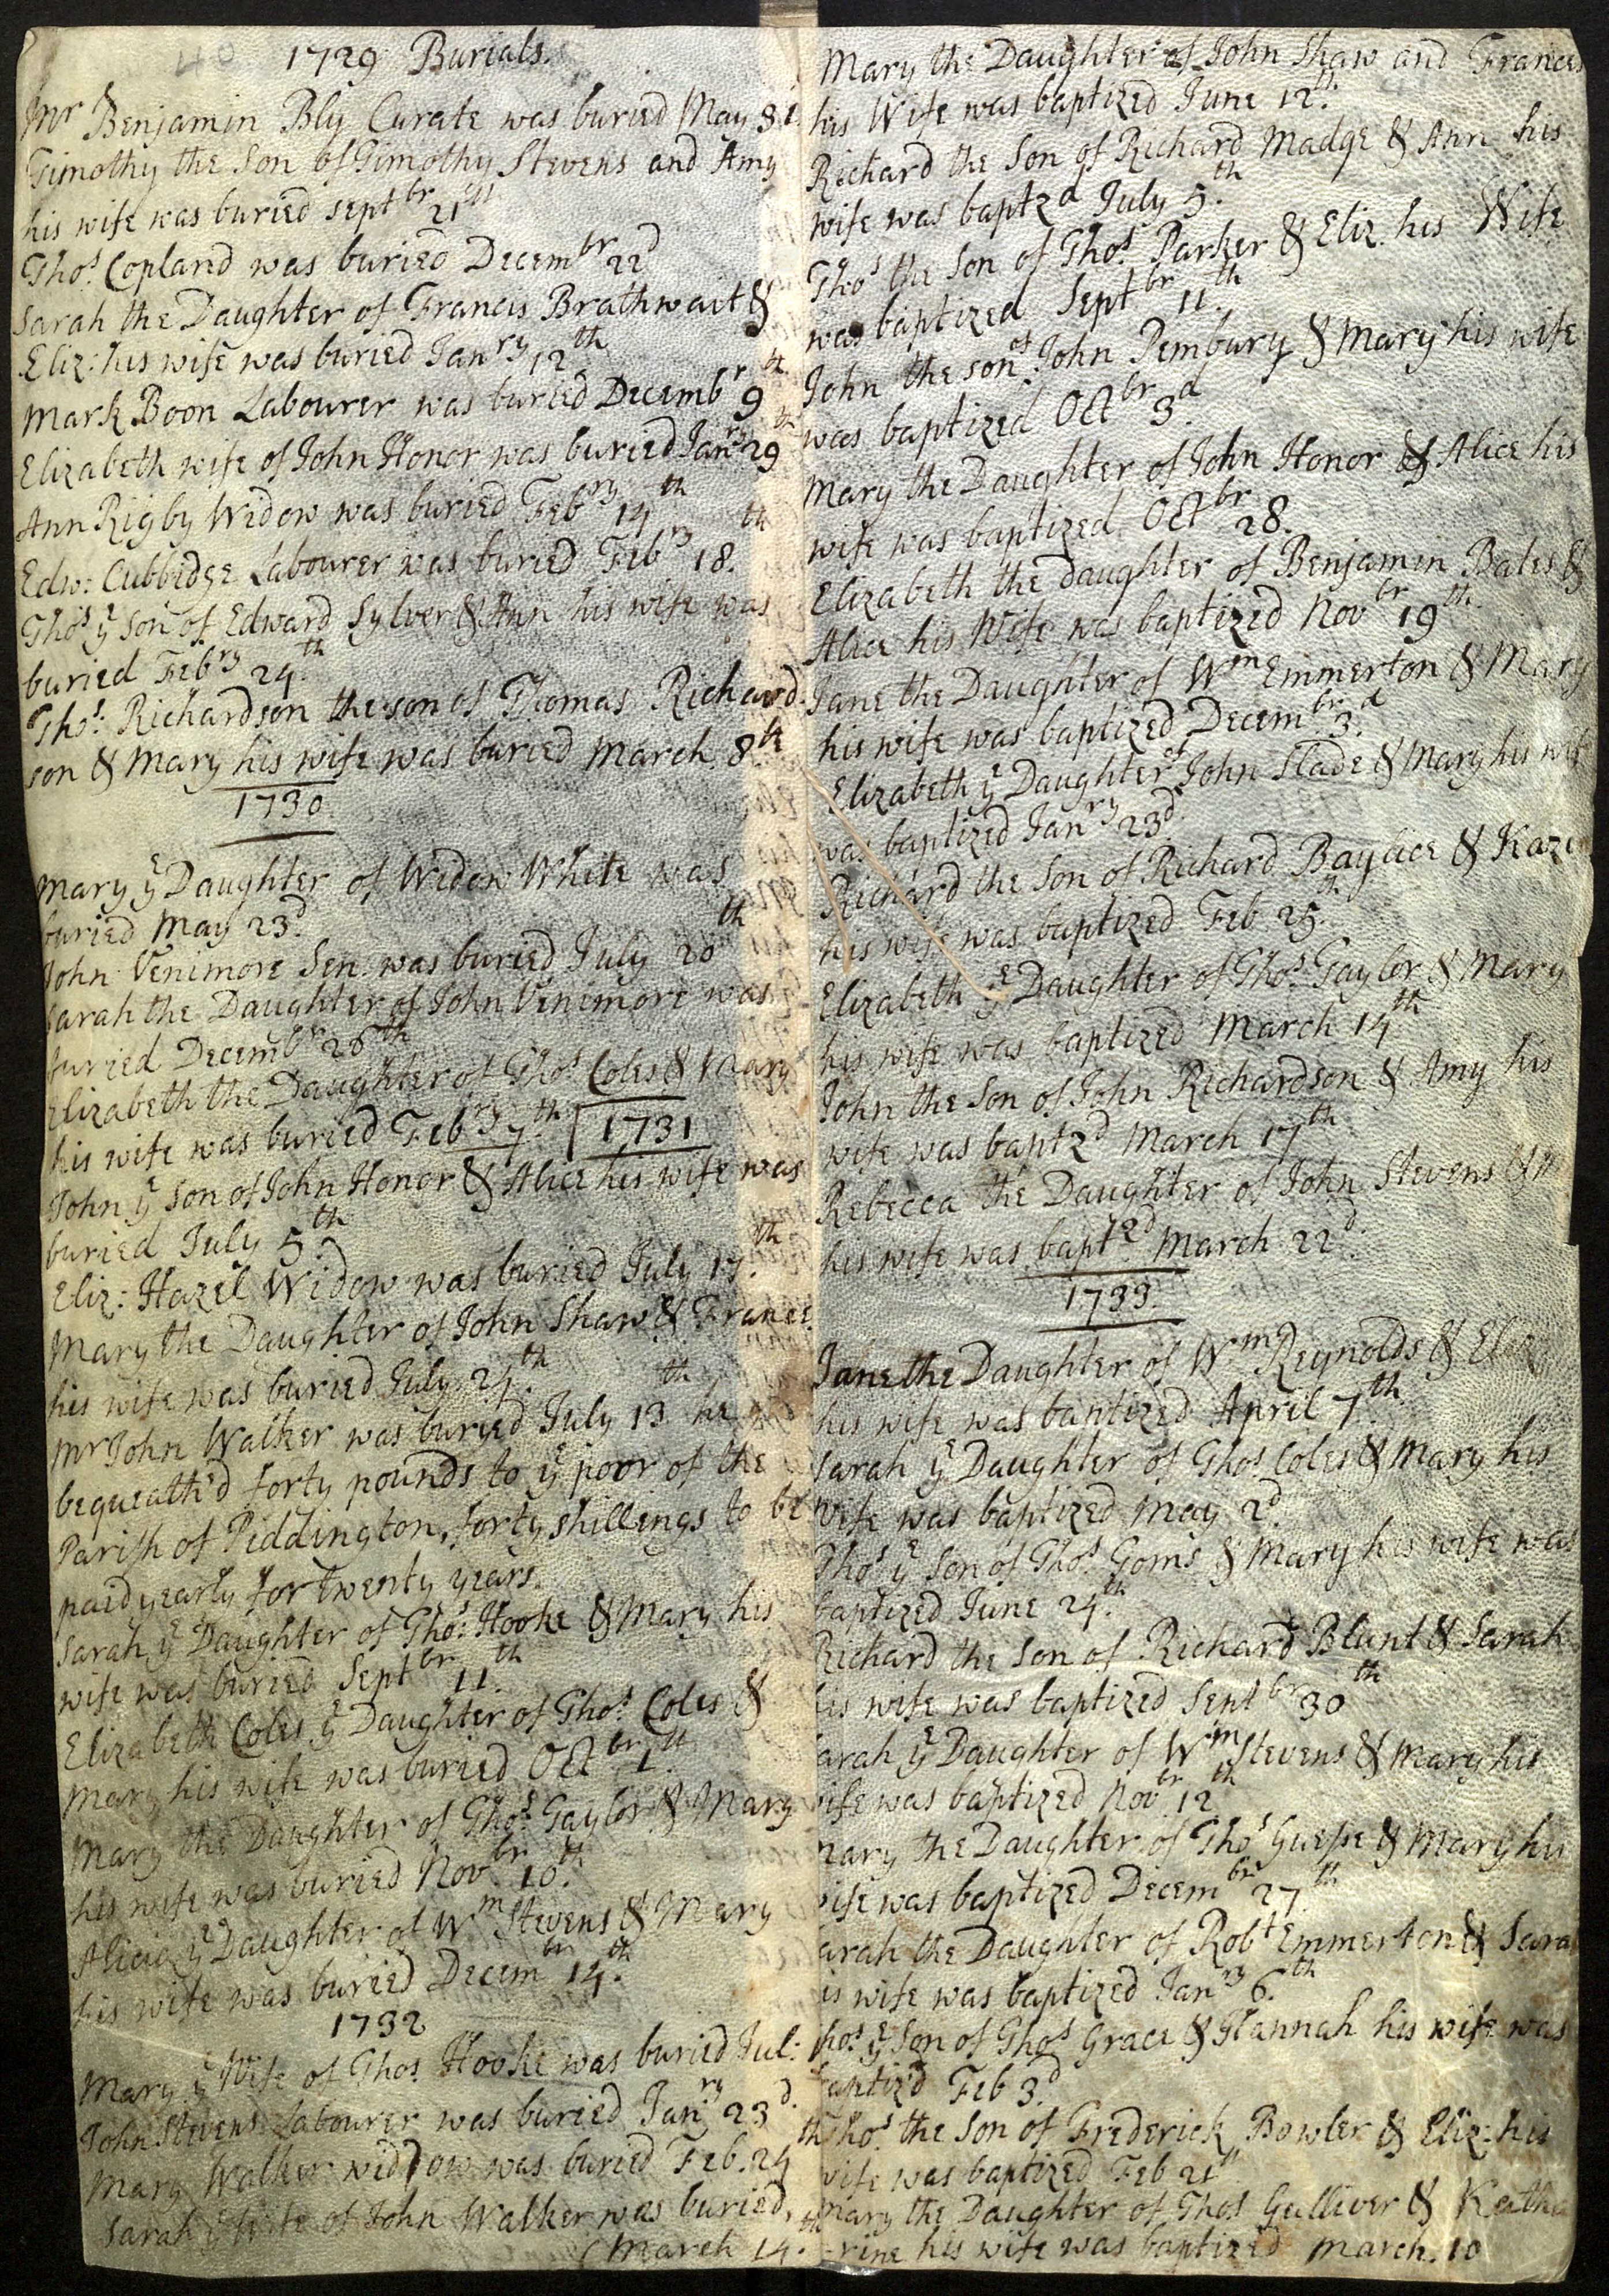 40
1729 Burials.
Mr Benjamin Bly Curate was buried May 31
Timothy the Son of Timothy Stevens and Amy
his wife was buried Septbr 21st
Thos. Copland was buried Decembr 22d
Sarah the Daughter of Francis Brathwait &
Eliz: his wife was buried Janry 12th
Mark Boon Labourer was buried Decembr 9th
Elizabeth wife of John Honor was buried Janry 29th
Ann Rigby Widow was buried Febry 14th
Edw: Cubbidge Labourer was buried Febry 18th.
Thos ye Son of Edward Sylver & Ann his wife was
buried Febry 24th.
Thos: Richardson the son of Thomas Richard-
son & Mary his wife was buried March 8th
1730.
Mary ye Daughter of Widow White was
buried May 23d.
John Venimore Sen. was buried July 20th
Sarah the Daughter of John Venimore was
buried Decembr 26th
Elizabeth the Daughter of Thos. Coles & Mary
his wife was buried Febry 7th. 1731
John ye Son of John Honor & Alice his wife was
buried July 5th.
Eliz: Hazel Widow was buried July 17th.
Mary the Daughter of John Shaw & France
his wife was buried July 24th.
Mr John Walker was buried July 13th he
bequeath'd forty pounds to ye poor of the
Parish of Piddington, forty shillings to be
paid yearly for twenty years.
Sarah ye Daughter of Thos: Hooke & Mary his
wife was buried Septbr 11th.
Elizabeth Coles ye Daughter of Thos. Coles &
Mary his wife was buried Octbr 1st.
Mary the Daughter of Thos. Taylor & Mary
his wife was buried Novbr 10th.
Alicia ye Daughter of Wm Stevens & Mary
his wife was buried Decembr 14th.
1732
Mary ye Wife of Thos. Hooke was buried Jul:
John Stevens Labourer was buried Janry 23d.
Mary Walker widdow was buried Feb. 24th
Sarah ye Wife of John Walker was buried,
(March 14th.
Mary the Daughter of John Shaw and Frances
his Wife was baptized June 12th.
Richard the Son of Richard Madge & Ann his
wife was baptzd July 5th.
Thos the Son of Thos. Parker & Eliz. his Wife
was baptized Septbr 11th.
John the son of John Pembury & Mary his wife
was baptized Octbr 3d.
Mary the Daughter of John Honor & Alice his
wife was baptized Octbr 28.
Elizabeth the daughter of Benjamin Bates &
Alice his Wife was baptized Novbr 19th.
Jane the Daughter of Wm Emmerton & Mary
his wife was baptized Decembr 3d.
Elizabeth ye Daughter of John Slade & Mary his wife
was baptized Janry 23d.
Richard the Son of Richard Baylice &
his wife was baptized Feb 25th.
Elizabeth ye Daughter of Thos. Taylor & Mary
his wife was baptized March 14th
John the Son of John Richardson & Amy his
wife was baptzd March 17th.
Rebecca the Daughter of John Stevens &
his wife was baptzd March 22d.
1733.
Jane the Daughter of Wm Reynolds & Eliz
his wife was baptized April 7th.
Sarah ye Daughter of Thos. Coles & Mary his
Wife was baptized May 2d.
Thos ye Son of Thos. Goms & Mary his wife was
baptized June 24th.
Richard the Son of Richard Blunt & Sarah
his wife was baptized Septbr 30th
arah ye Daughter of Wm Stevens & Mary his
wife was baptized Novbr 12th
Mary the Daughter of Thos Guesse & Mary his
wife was baptized Decembr 27th.
arah the Daughter of Robt Emmerton & Sara
is wife was baptized Janry 6th.
hos. ye Son of Thos Grace & Hannah his wife was
baptiz'd Feb 3d.
Thos. the Son of Frederick Bowler & Eliz: his
wife was baptized Feb 21st.
Mary the Daughter of Thos. Gulliver & Katha
-rine his wife was baptized March. 10